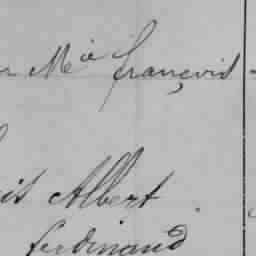 Mie françois
is Albert
ferdinand